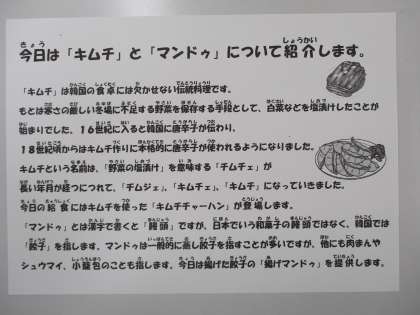 今日は「キムチ」と「マンドゥ」について紹介します。
「キムチ」は韓国の食卓には欠かせない伝統料理です。
もとは寒さの厳しい冬場に不足する野菜を保存する手段として、白菜などを塩漬けしたことが
始まりでした。16世紀に入ると韓国に唐辛子が伝わり、
18世紀頃からはキムチ作りに本格的に唐辛子が使われるようになりました。
キムチという名前は、「野菜の塩漬け」を意味する「チムチェ」が
長い年月が経つにつれて、「チムジェ」、「キムチェ」、「キムチ」になっていきました。
今日の給食にはキムチを使った「キムチチャーハン」が登場します。
「マンドゥ」とは漢字で書くと「饅頭」ですが、日本でいう和菓子の饅頭ではなく、韓国では
「餃子」を指します。マンドゥは一般的に蒸し餃子を指すことが多いですが、他にも肉まんや
シュウマイ、小籠包のことも指します。今日は揚げた餃子の「揚げマンドゥ」を提供します。